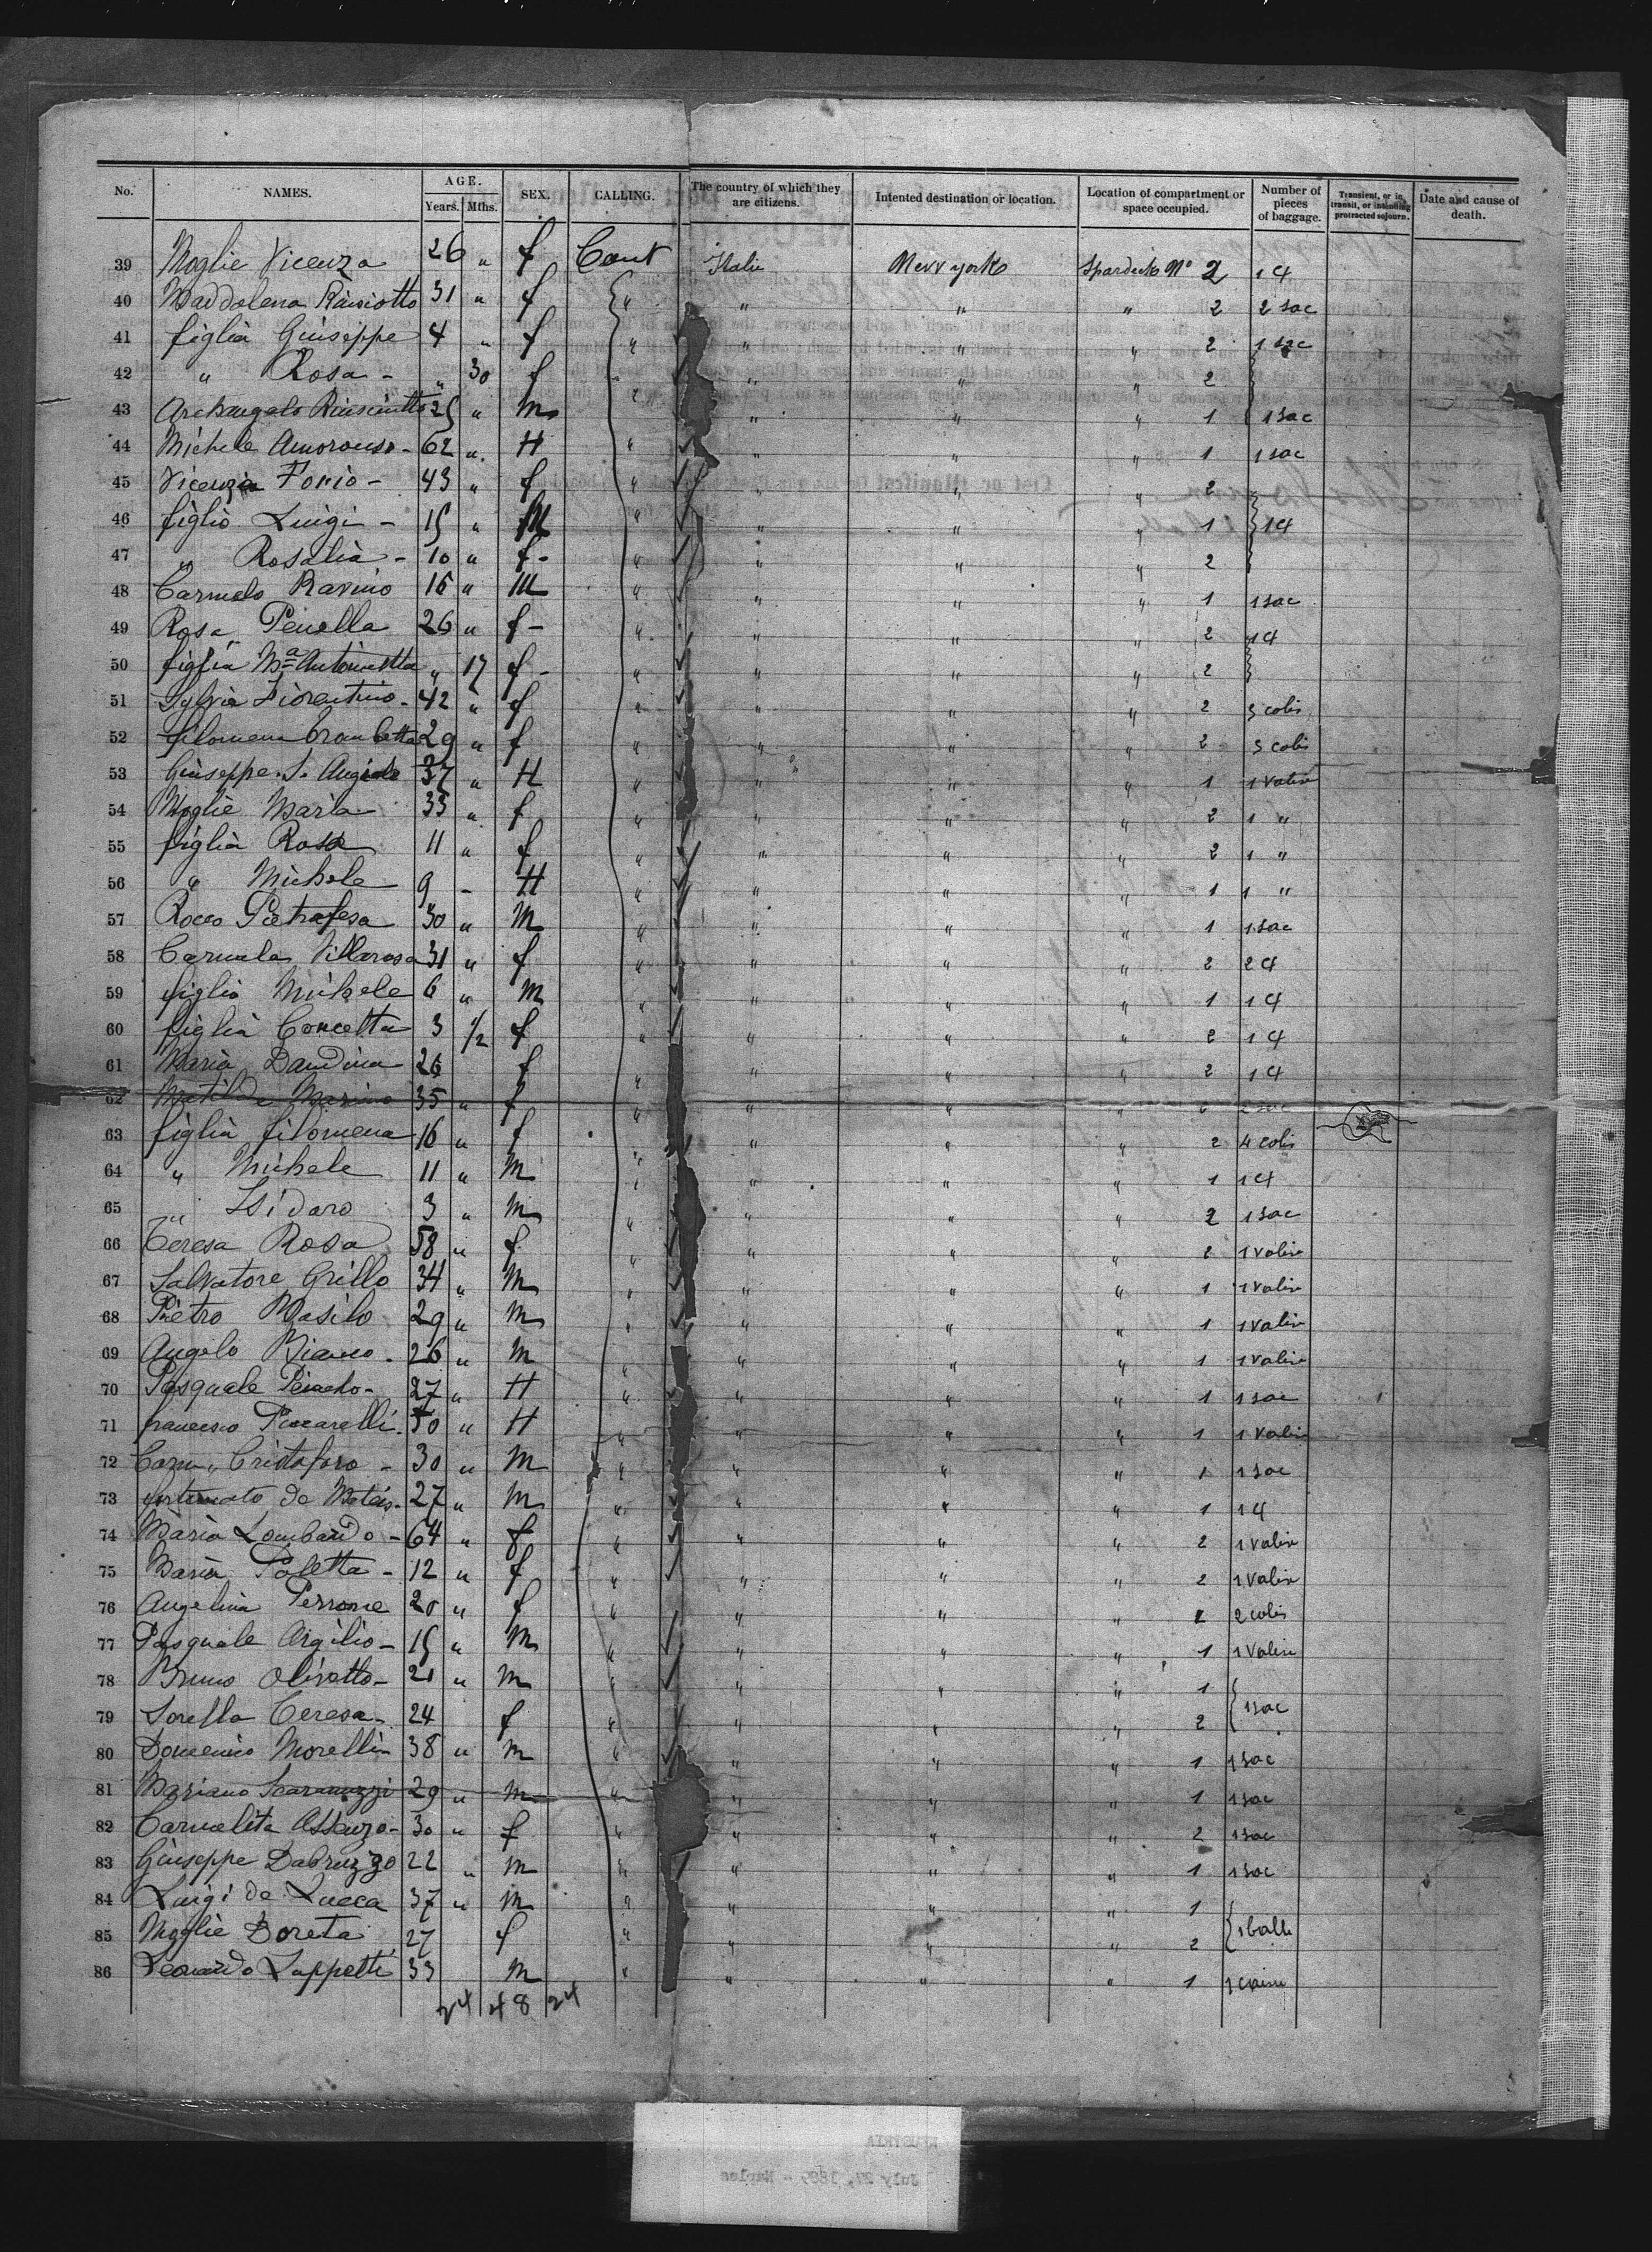 No. NAMES. AGE. Years. Mths. SEX. CALLING. The country of which they are citizens. Intented destination or location. Location of compartment or space occupied. Number of pieces of baggage. Transient, or in transit, or intending protracted sojourn. Date and cause of death.
39 Moglie Vicenza 26 " f Cont Italie New york Spardeck No 2 1 4
40 Maddalena 31 " f " " " " 2 2 sac
41 figlia Giuseppe 4 " f " " " " 2 1 sac
42 " Rosa - " 30 f " " " 2
43 Archangelo 25 " m " " " 1 1 sac
44 Michele - 62 " H " " " " 1 1 sac
45 Vicenzia - 43 " f " " " " 2
46 figlio Luigi - 15 " M " " " " 1 14
47 " Rosalia - 10 " f - " " " " 2
48 Carmelo Ravino 16 " M " " " " 1 1 sac
49 Rosa Penella 26 " f - " " " " 2 14
50 figlia Ma Antonietta " 17 f - " " " " 2
51 Sylvia Fiorentino - 42 " f " " " " 2 3 colis
52 filomena 29 " f " " " " 2 3 colis
53 Giuseppe S. Angiolo 37 " H " " " " 1 1 valise
54 Moglie Maria 33 " f " " " " 2 1 "
55 figlia Rosa 11 " f " " " " 2 1 "
56 " Michele 9 - H " " " " 1 1 "
57 Rocco Pietrafesa 30 " M " " " " 1 1 sac
58 Carmela Villarosa 31 " f " " " " 2 2 4
59 figlio Michele 6 " M " " " " 1 1 4
60 figlia Concetta 3 1/2 f " " " " 2 1 4
61 Maria Dandina 26 f " " " " 2 1 4
62 Matilda Marino 35 " f " " " "
63 figlia filomena 16 " f " " " 2 4 colis
64 " Michele 11 " M " " " " 1 1 4
65 " Isidoro 3 " M " " " " 2 1 sac
66 Teresa Rosa 58 " f " " " " 2 1 valise
67 Salvatore Grillo 34 " M " " " " 1 1 valise
68 Pietro Masilo 29 " M " " " " 1 1 valise
69 Angelo Bianco. 26 " M " " " " 1 1 valise
70 Pasquale - 27 " H " " " " 1 1 sac
71 francesco Piccarelli. 50 " H " " " " 1 1 valise
72 Cristoforo - 30 " M " " " " 1 1 sac
73 fortunato de - 27 " M " " " " 1 14
74 Maria Lombardo - 64 " f " " " " 2 1 valise
75 Maria Poletta - 12 " f " " " " 2 1 valise
76 Angelina Perrone 20 " f " " " " 2 2 colis
77 Pasquale Argilio - 15 " M " " " " 1 1 valise
78 Bruno Olivotto - 21 " M " " " 1
79 Sorella Teresa - 24 f " " " " 2 1 sac
80 Domenico Morelli - 38 " m " " " " 1 1 sac
81 Mariano Scaramuzzi 29 " m " " " " 1 1 sac
82 Carmelita Assenzo - 30 " f " " " " 2 1 sac
83 Giuseppe Dabruzzo 22 " m " " " " 1 1 sac
84 Luigi de Lucca 37 " m " " " " 1
85 Moglie Doreta 27 f " " " " 2 1 balle
86 Leonardo Lappetti 33 m " " " " 1 1 caisse
24 48 24
AUSTRIA
July 27, 1889 - Naples